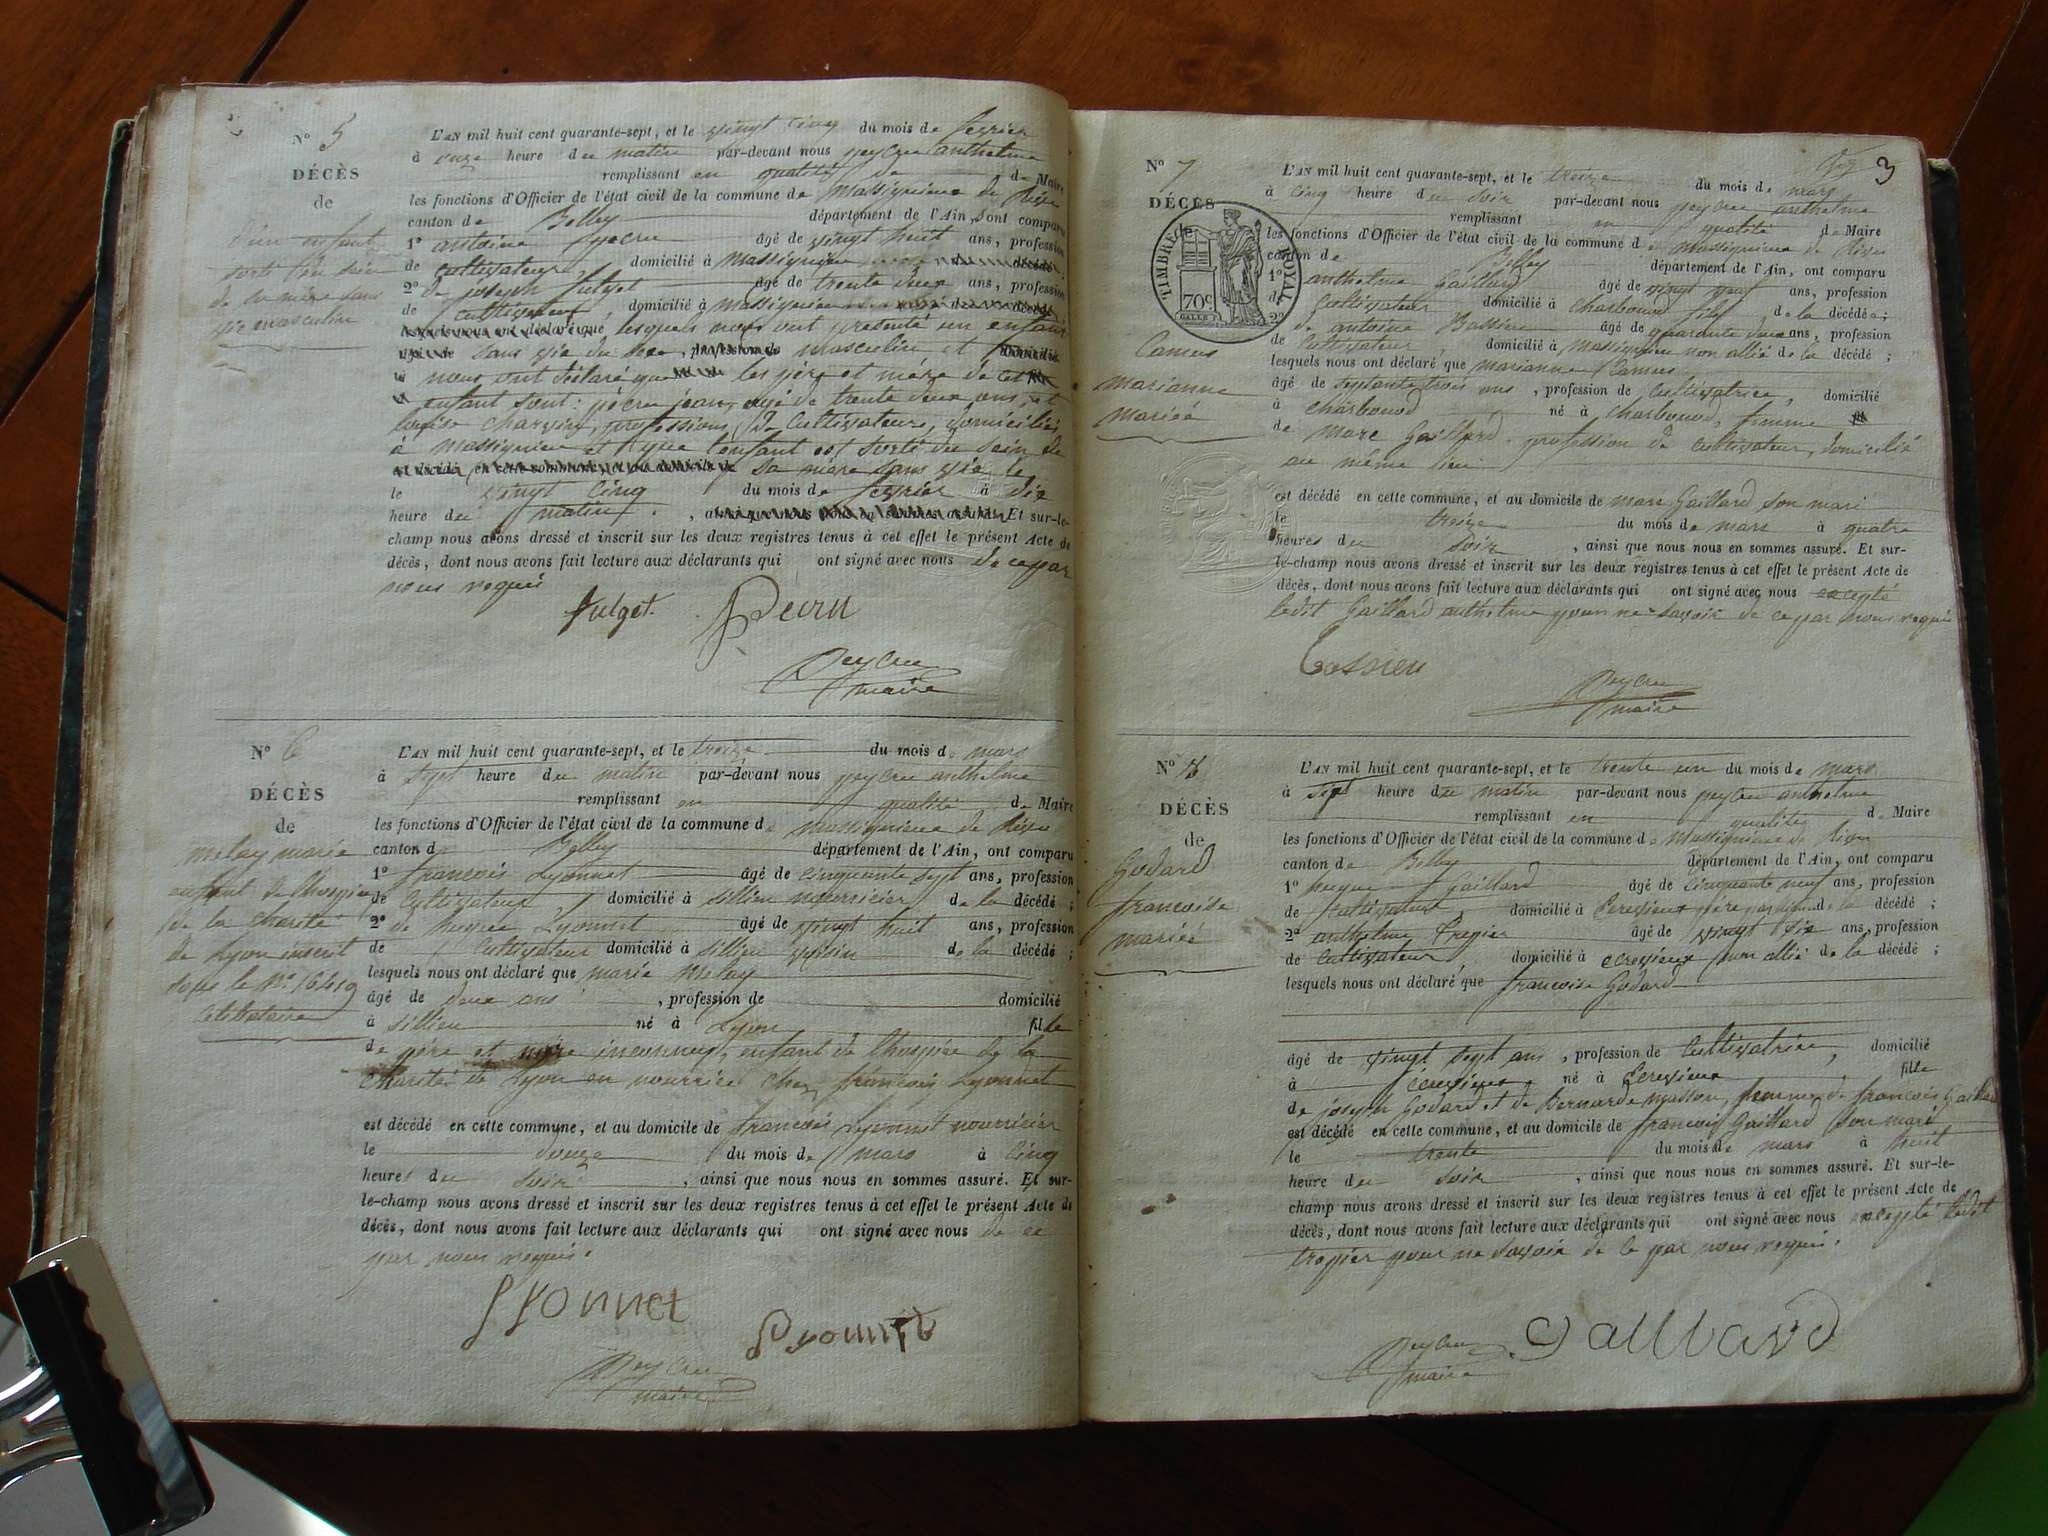 N° 5
DÉCÈS
de
d'un enfant
sorti du sein
de sa mère sans
vie masculin
L'AN mil huit cent quarante-sept, et le vingt cinq du mois de fevrier
à onze heure du matin par-devant nous peycru anthelme
remplissant en qualité de de Maire
les fonctions d'Officier de l'état civil de la commune de Massignieu de Rives
canton de Belley département de l'Ain, sont comparu
1° antoine pécru âgé de vingt huit ans, profession
de cultivateur, domicilié à massignieu
2° de joseph fulget âgé de trente deux ans, profession
de cultivateur, domicilié à massignieu
lesquels nous ont présenté un enfant
sans vie du sexe masculin et
nous ont déclaré que les père et mère de cet
enfant sont: pécru jean, âgé de trente deux ans, et
louise charvin, professions de cultivateurs, domiciliés
à massignieu et que l'enfant est sorti du sein de
sa mère sans vie le
le vingt cinq du mois de fevrier à dix
heure du matin. Et sur-le-
champ nous avons dressé et inscrit sur les deux registres tenus à cet effet le présent Acte de
décès, dont nous avons fait lecture aux déclarants qui ont signé avec nous de ce par
nous requis
fulget. Pecru
Peycru
maire
N° 6
DÉCÈS
de
melay marie
enfant de l'hospice
de la charité
de Lyon inscrit
sous le N°. 16419
célibataire
L'AN mil huit cent quarante-sept, et le treize du mois de mars
à sept heure du matin par-devant nous peycru anthelme
remplissant en qualité de Maire
les fonctions d'Officier de l'état civil de la commune de massignieu de Rives
canton de Belley département de l'Ain, ont comparu
1° francois Lyonnet âgé de cinquante sept ans, profession
de cultivateur, domicilié à sillieu nourricier de la décédé;
2° de Lyonnet âgé de vingt huit ans, profession
de cultivateur domicilié à sillieu voisin de la décédé;
lesquels nous ont déclaré que marie melay
âgé de deux ans, profession de domicilié
à sillieu né à Lyon fille
de père et mère inconnus, enfant de l'hospice de la
charité de Lyon en nourrice chez francois Lyonnet
est décédé en cette commune, et au domicile de francois Lyonnet nourricier
le douze du mois de mars à cinq
heures du soir, ainsi que nous nous en sommes assuré. Et sur-
le-champ nous avons dressé et inscrit sur les deux registres tenus à cet effet le présent Acte de
décès, dont nous avons fait lecture aux déclarants qui ont signé avec nous de ce
par nous requis.
lyonnet
lyonnet
Peycru
maire
3
N° 7
DÉCÈS
de
TIMBRE ROYAL
70c
Camus
marianne
mariée
L'AN mil huit cent quarante-sept, et le treize du mois de mars
à cinq heure du soir par-devant nous peycru anthelme
remplissant en qualité de Maire
les fonctions d'Officier de l'état civil de la commune de massignieu de Rives
canton de Belley département de l'Ain, ont comparu
1° anthelme Gaillard âgé de vingt neuf ans, profession
de cultivateur domicilié à charbonod fils de la décédée;
2° de antoine Bassieu âgé de quarante deux ans, profession
de cultivateur, domicilié à massignieu non allié de la décédé;
lesquels nous ont déclaré que marianne Camus
âgé de septante trois ans, profession de cultivatrice, domicilié
à charbonod né à charbonod, femme
de marc Gaillard, profession de cultivateur, domicilié
au même lieu
est décédé en cette commune, et au domicile de marc Gaillard son mari
le treize du mois de mars à quatre
heures du soir, ainsi que nous nous en sommes assuré. Et sur-
le-champ nous avons dressé et inscrit sur les deux registres tenus à cet effet le présent Acte de
décès, dont nous avons fait lecture aux déclarants qui ont signé avec nous excepté
ledit Gaillard anthelme pour ne savoir de ce par nous requis
Peycru
maire
N° 8
DÉCÈS
de
Godard
francoise
mariée
L'AN mil huit cent quarante-sept, et le trente un du mois de mars
à sept heure du matin par-devant nous peycru anthelme
remplissant en qualité de Maire
les fonctions d'Officier de l'état civil de la commune de Massignieu de Rives
canton de Belley département de l'Ain, ont comparu
1° Gaillard âgé de cinquante neuf ans, profession
de cultivateur, domicilié à de la décédé;
2° anthelme Tropier âgé de vingt six ans, profession
de cultivateur, domicilié à ecrevieux non allié de la décédé;
lesquels nous ont déclaré que francoise Godard
âgé de vingt sept ans, profession de cultivatrice, domicilié
à écrevieux né à Ecrevieux fille
de joseph Godard et de Bernarde masson, femme de francois Gaillard
est décédé en cette commune, et au domicile de francois Gaillard son mari
le trente du mois de mars à huit
heure du soir, ainsi que nous nous en sommes assuré. Et sur-le-
champ nous avons dressé et inscrit sur les deux registres tenus à cet effet le présent Acte de
décès, dont nous avons fait lecture aux déclarants qui ont signé avec nous excepté ledit
tropier pour ne savoir de ce par nous requis.
gaillard
Peycru
maire